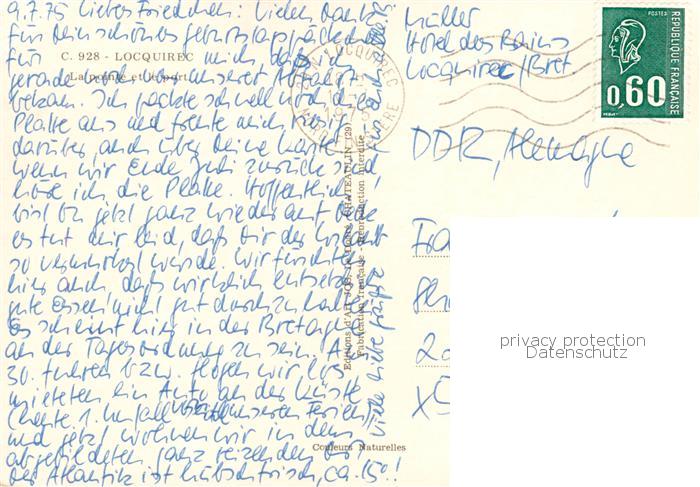 9.7.75 Liebes Friedchen: Vielen Dank
für Dein schönes Geburtstagspäckchen
für mich, daß ich
gerade vor unserer Abfahrt
bekam. Ich packte schnell noch die
Platte aus und freute mich riesig
darüber, auch über Deine Karte
wenn wir Ende Juli zurück sind
höre ich die Platte. Hoffentlich
bist Du jetzt ganz wieder auf
es tut mir leid, daß Dir der
so vermurkst wurde. Wir
hier auch, daß wirklich
gute Essen nicht gut durchzuhalten
es scheint hier in der Bretagne
an der Tagesordnung zu sein. Am
30. fuhren bzw. flogen wir los
mieteten ein Auto an der Küste
(heute 1. Unfall unseren Ferien)
und jetzt wohnen wir in dem
abgebildeten ganz reizenden Ort
der Atlantik ist hübsch frisch, ca. 15°!
Viele liebe Grüße
C. 928 - LOCQUIREC
La pointe et le port
LOCQUIREC
FINISTERE
Editions d'Art JOS, CHATEAULIN (29)
Fabrication française - Reproduction interdite
Couleurs Naturelles
Müller
Hotel des Bains
Locquirec/Bret
POSTES
REPUBLIQUE FRANÇAISE
0,60
DDR, Allemagne
privacy protection
Datenschutz